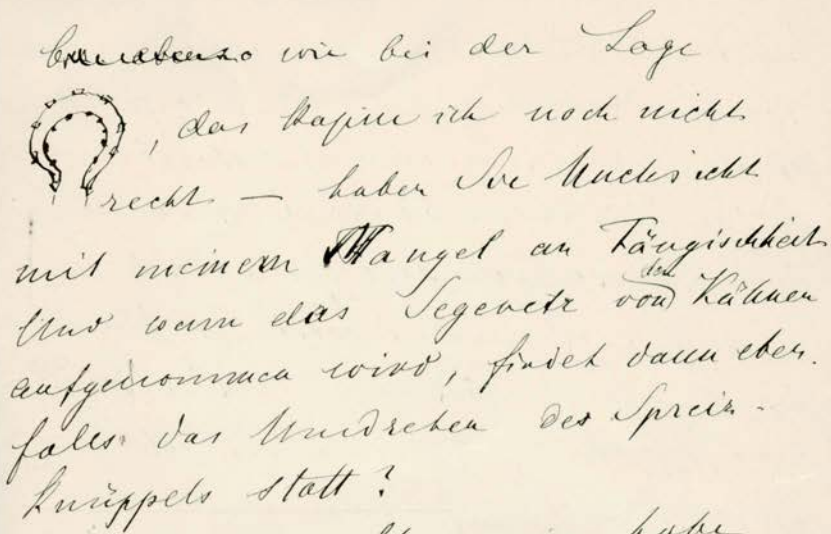 wie bei der Lage
, das kapire ich noch nicht
recht — haben Sie Nachsicht
mit meinem Mangel an Fängischkeit
Und wenn das Segenetz von den Kähnen
aufgenommen wird, findet dann eben-
falls das Umdrehen des Spreiz-
knüppels statt?
habe